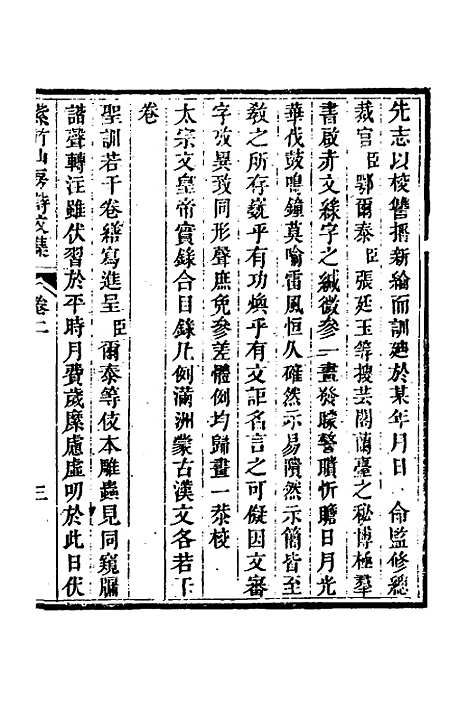 先志以校讐播新綸而訓廸於某年月日　命監修總
裁官臣鄂爾泰臣張廷玉等搜芸閣蘭臺之秘博極羣
書啟赤文綠字之緘微參一畫發矇警聵忻瞻日月光
華伐鼓鳴鐘莫喻雷風恒久確然示易隤然示簡皆至
敎之所存巍乎有功煥乎有文詎名言之可儗因文審
字攷異致同形聲庶免參差體例均歸畫一恭校
太宗文皇帝實錄合目錄凡例滿洲蒙古漢文各若干
卷
聖訓若干卷繕寫進呈臣爾泰等伎本雕蟲見同窺牖
諧聲轉注雖伏習於平時月費歲糜慮虛叨於此日伏
紫竹山房詩文集　卷二　三